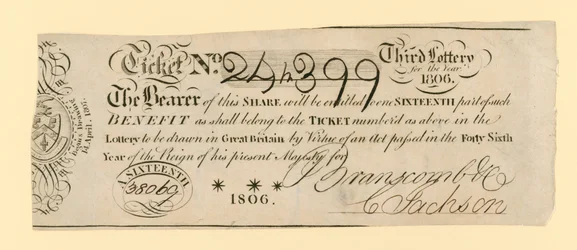 Ticket No. 24h399
Third Lottery
for the Year
1806.
The Bearer of this SHARE will be entitled to one SIXTEENTH part of such
BENEFIT as shall belong to the TICKET number'd as above in the
Lottery to be drawn in Great Britain by Virtue of an Act passed in the Forty Sixth
Year of the Reign of his present Majesty for
A SIXTEENTH
38069
* * *
1806.
Branscomb & Co
C Jackson